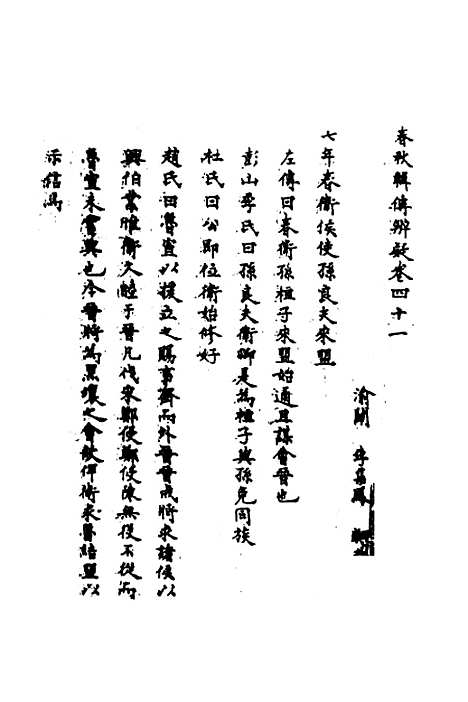 春秋輯傳辨疑卷四十一
渝關 李集鳳
七年春衛侯使孫良夫來盟
左傳曰春衛孫桓子來盟始通且謀會晉也
彭山季氏曰孫良夫衛卿是為桓子與孫免同族
杜氏曰公即位衛始修好
趙氏曰魯宣以援立之賜事齊而外晉晉成將求諸侯以
興伯業惟衛久睦于晉凡伐宋鄭使鄭使陳無役不從而
魯宣未嘗與也今晉將為黑壤之會故俾衛求魯結盟以
示信焉